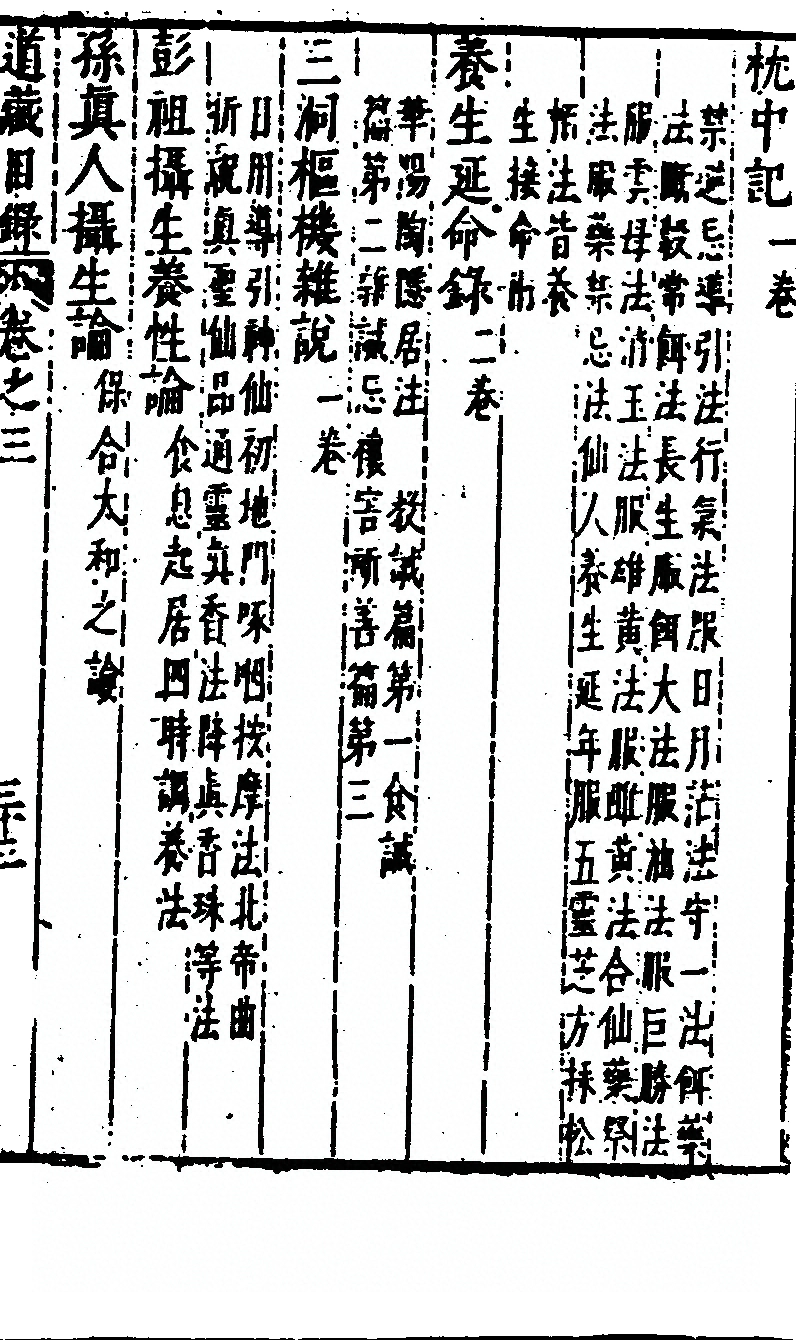 枕中記一卷
禁避忌導引法行氣法服日月芒法守一法餌藥
法斷穀常餌法長生服餌大法服油法服巨勝法
服雲母法消玉法服雄黃法服雌黃法合仙藥祭
法服藥禁忌法仙人養生延年服五靈芝方採松
栢法皆養
生接命術
養生延命錄二卷
華陽陶隱居法 教誡篇第一食誡
篇第二雜誡忌禳害祈善篇第三
三洞樞機雜說一卷
日用導引神仙初地門啄咽按摩法北帝曲
折祝真聖仙品通靈真香法降真香珠等法
彭祖攝生養性論食息起居四時調養法
孫眞人攝生論保合太和之論
道藏目錄 卷之三 三十三